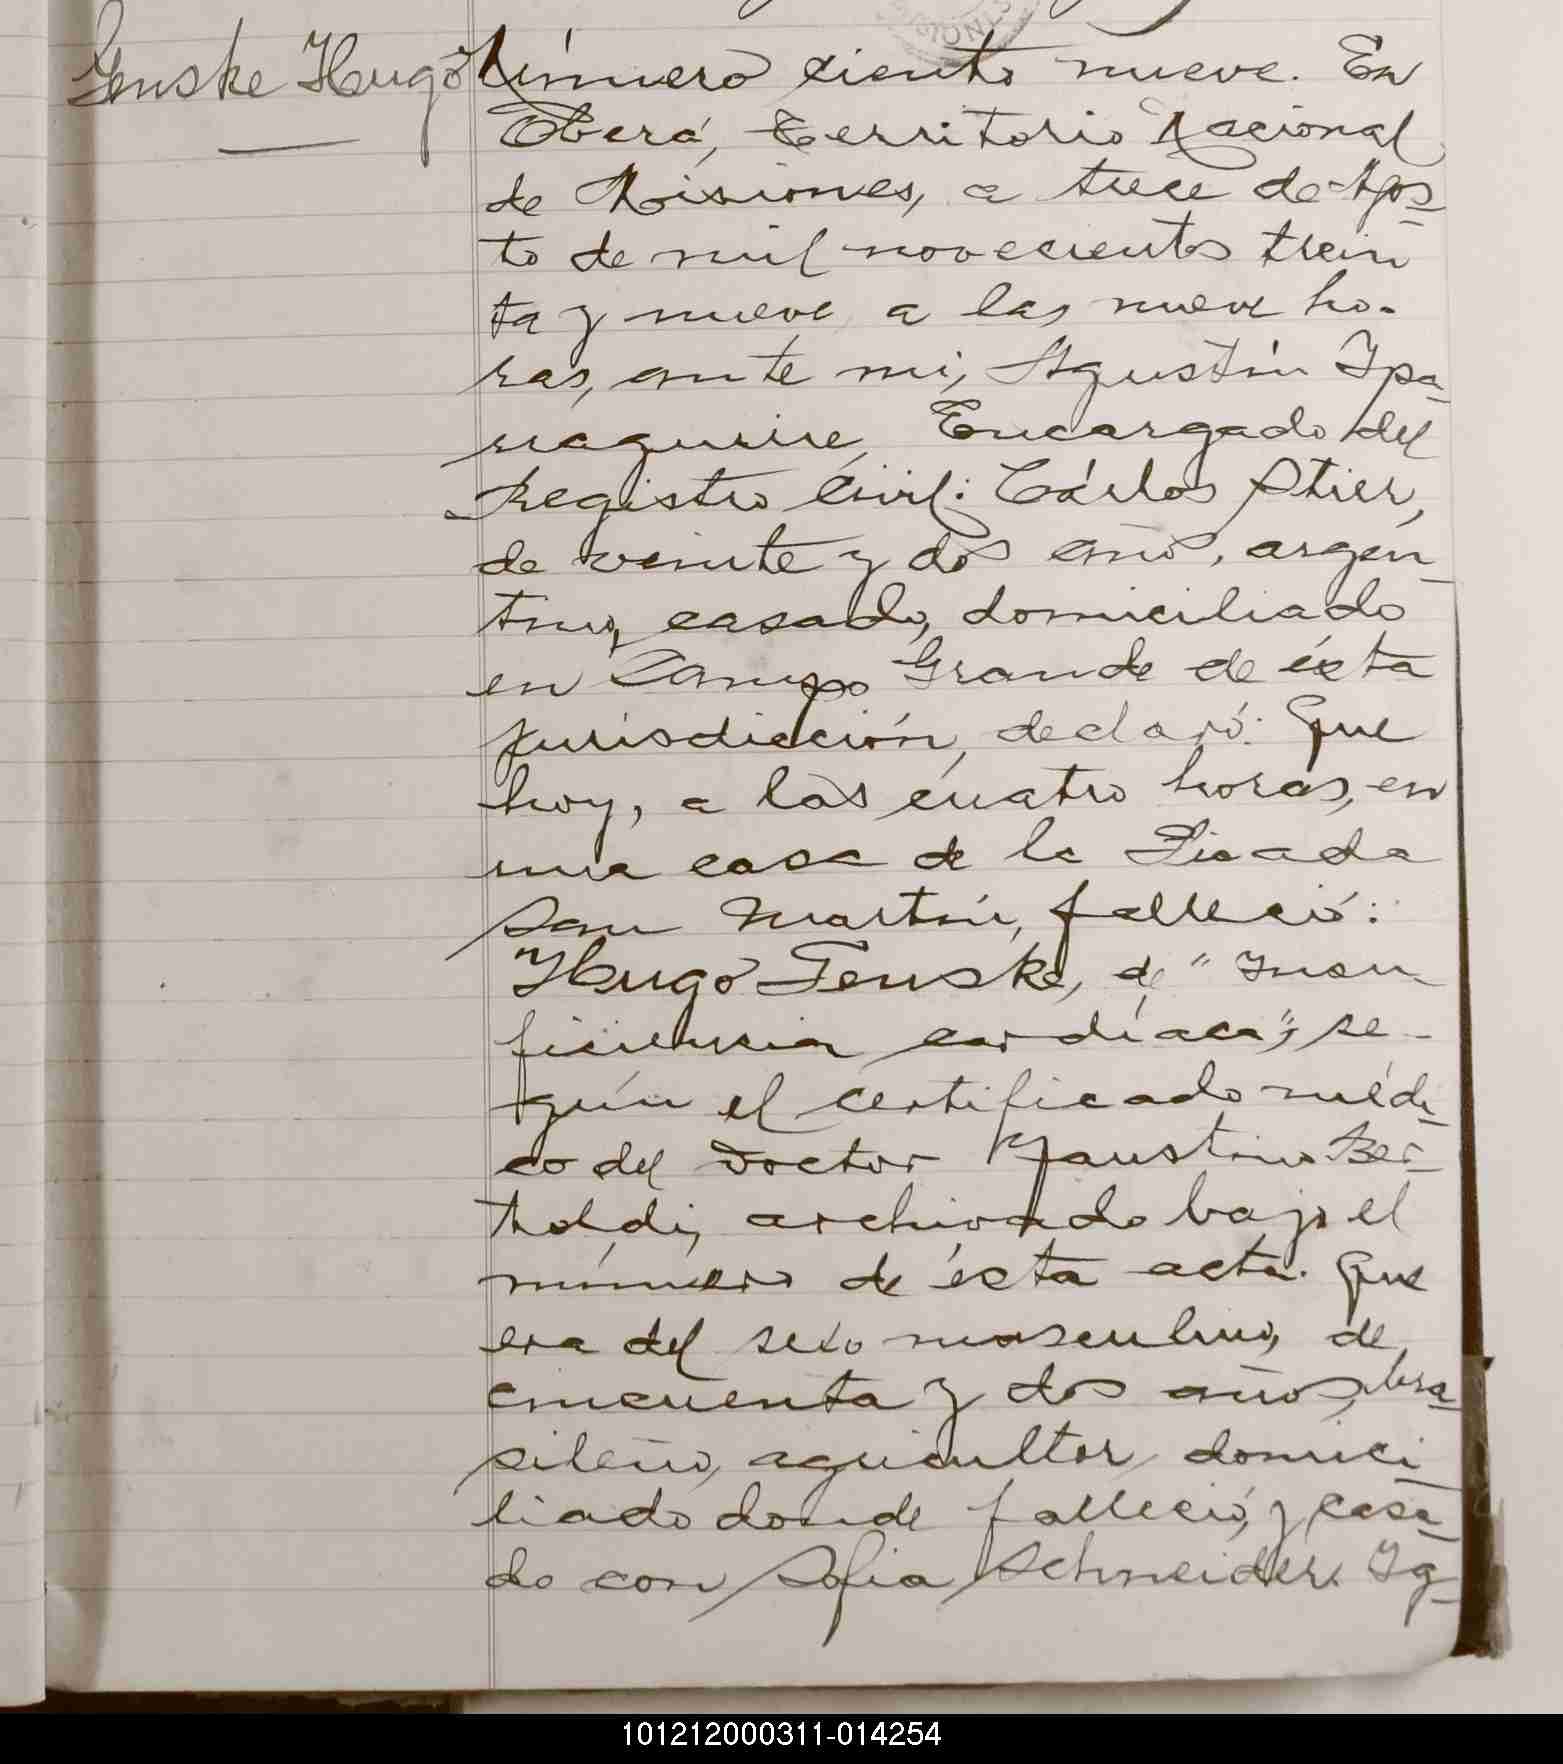 CIONES
Genske Hugo
Número ciento nueve. En
Oberá, Territorio Nacional
de Misiones, a trece de Agos-
to de mil novecientos trein
ta y nueve, a las nueve ho-
ras, ante mi, Agustín Ypa-
rraguirre, Encargado del
Registro Civil: Cárlos Stier,
de veinte y dos años, argen-
tino, casado, domiciliado
en Campo Grande de ésta
jurisdicción, declaró: Que
hoy, a las cuatro horas, en
una casa de la Picada
San Martín, falleció:
Hugo Genske, de "Insu
ficiencia cardíaca", se-
gún el certificado médi-
co del Doctor Faustino Ber-
toldi, archivado bajo el
número de ésta acta. Que
era del sexo masculino, de
cincuenta y dos años, bra-
sileño, agricultor, domici-
liado donde falleció, y casa-
do con Sofia Schneider. Ig-
101212000311-014254